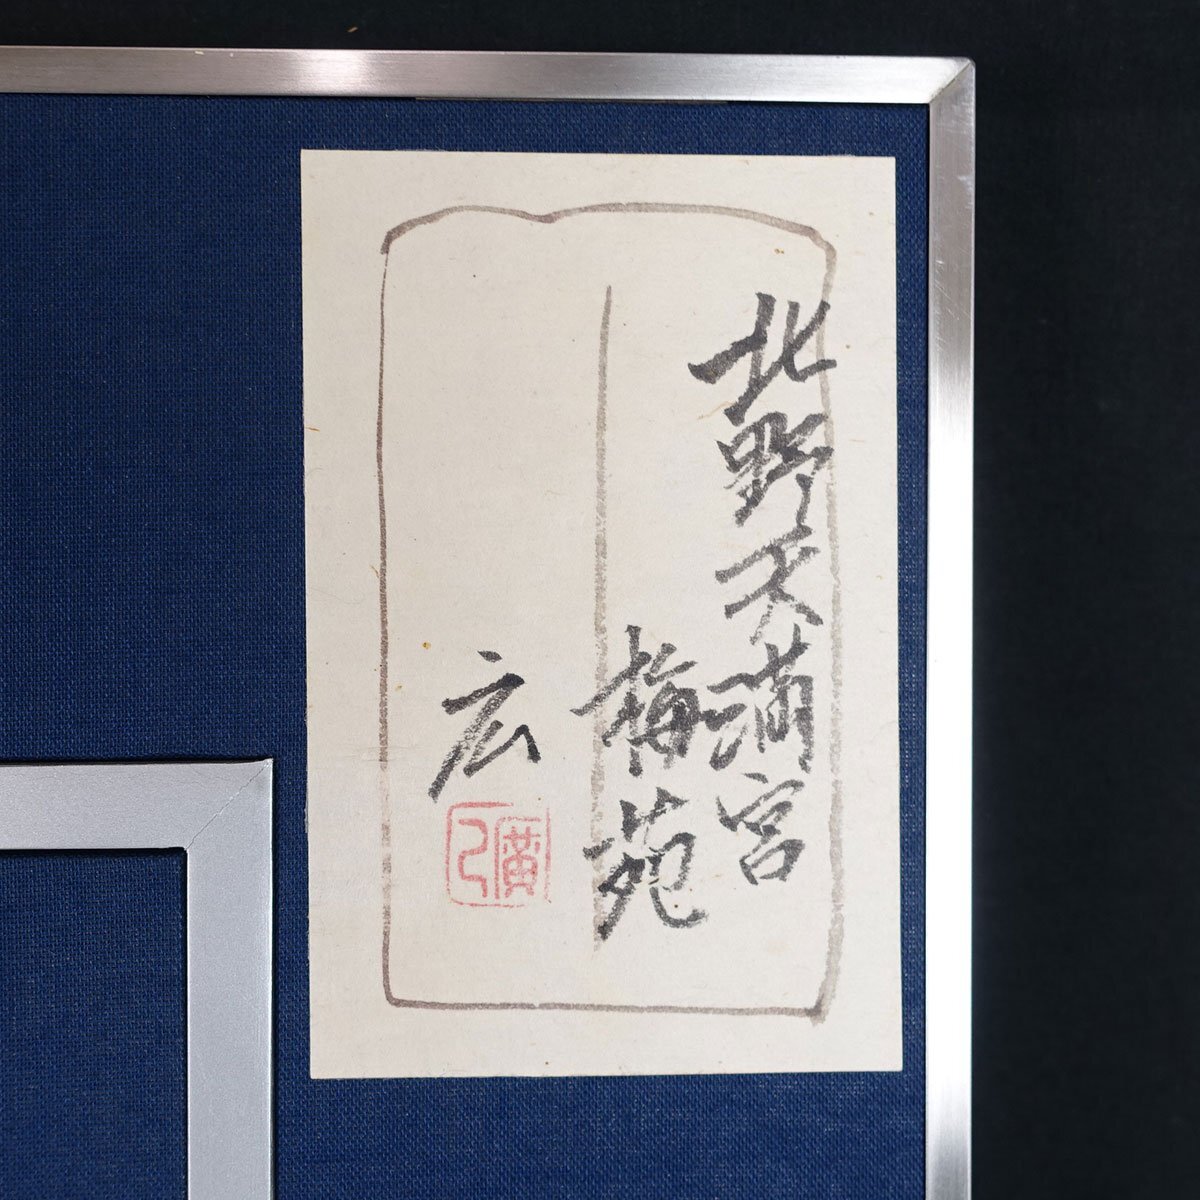 北野天満宮
梅苑
広
廣